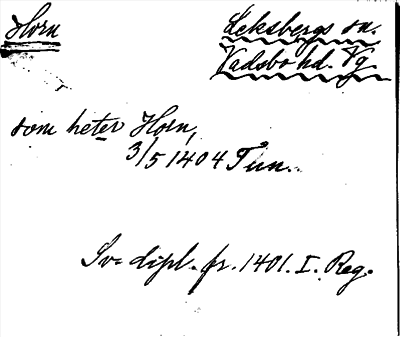 Horn
Leksbergs sn.
Vadsbo hd. Vg
som heter Horn,
3/5 1404 Tun.
Sv. dipl. fr. 1401. I. Reg.